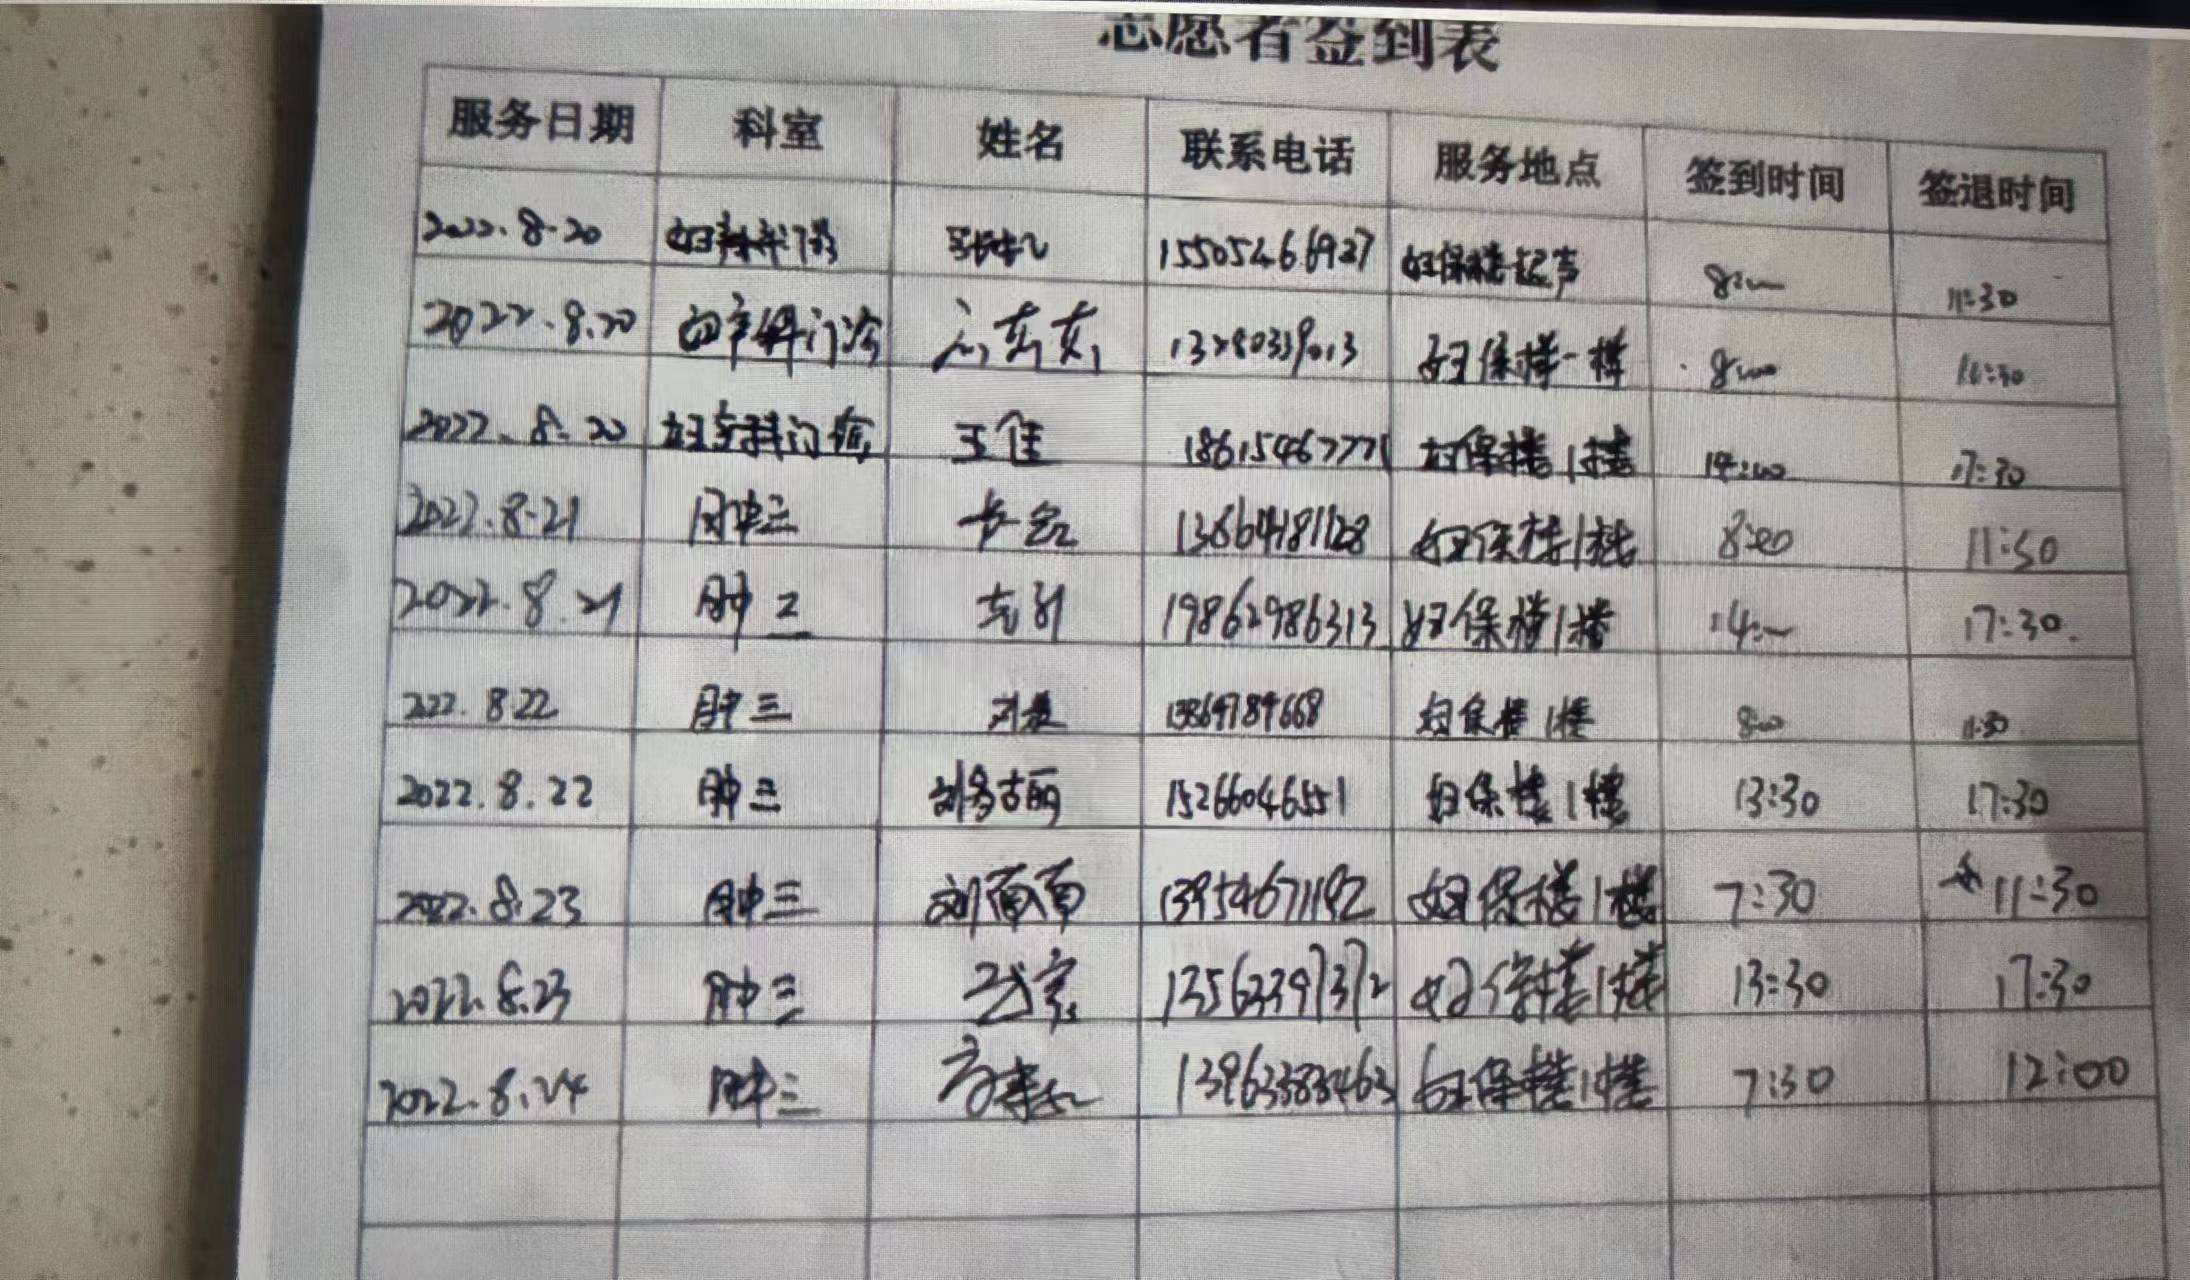 志愿者签到表
服务日期 科室 姓名 联系电话 服务地点 签到时间 签退时间
2022.8.20 妇产科门诊 15505466927 妇保楼超声 8:00 11:30
2022.8.20 妇产科门诊 东东 13280339013 妇保楼一楼 8:00 11:30
2022.8.20 妇产科门诊 王佳 18615467771 妇保楼1楼 14:00 17:30
2022.8.21 肿三 13664181128 妇保楼1楼 8:00 11:30
2022.8.21 肿三 19862986313 妇保楼1楼 14:00 17:30.
2022.8.22 肿三 13869784668 妇保楼1楼 8:00 11:30
2022.8.22 肿三 15266046551 妇保楼1楼 13:30 17:30
2022.8.23 肿三 刘南南 13954671192 妇保楼1楼 7:30 11:30
2022.8.23 肿三 13562397372 妇保楼1楼 13:30 17:30
2022.8.24 肿三 13963383463 妇保楼1楼 7:30 12:00